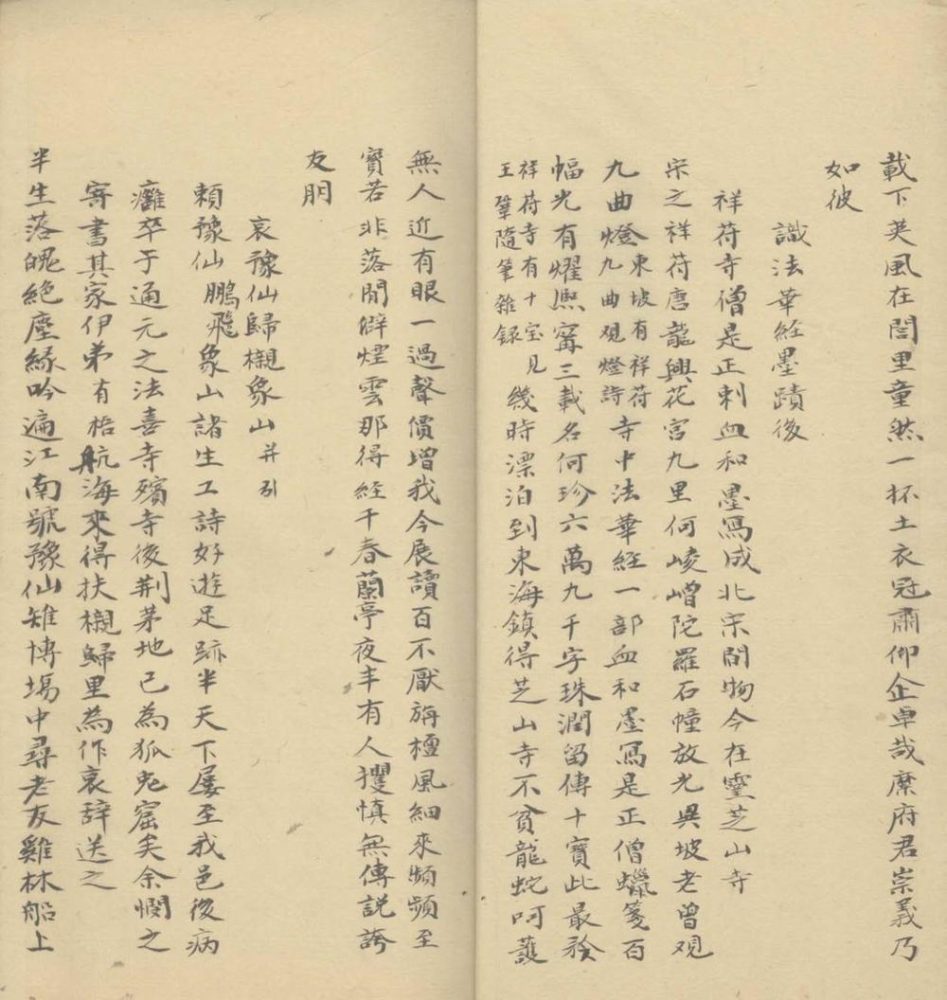 載下英風在閭里童然一抔土衣冠肅仰企卓哉麋府君崇義乃
如彼
識法華經墨蹟後
祥符寺僧是正刺血和墨寫成北宋間物今在靈芝山寺
宋之祥符唐龍興花宮九里何崚嶒陀羅石幢放光異坡老曾观
九曲燈東坡有祥符
九曲观燈詩寺中法華經一部血和墨寫是正僧蠟箋百
幅光有耀熙寧三載名何珍六萬九千字珠潤留傳十寶此最矜
祥符寺有十宝見
王肇隨筆雜録幾時漂泊到東海鎮得芝山寺不貧龍蛇呵護
無人近有眼一過聲價增我今展讀百不厭旃檀風細來頻頻至
寳若非落閒僻煙雲那得経千春蘭亭夜半有人攫慎無傳説誇
友朋
哀豫仙歸櫬象山并引
賴豫仙鵬飛象山諸生工詩好遊足跡半天下屡至我邑後病
癱卒于通元之法喜寺殯寺後荆茅地已為狐兎窟矣余憫之
寄書其家伊弟有梧航海來得扶櫬歸里為作哀辞送之
半生落魄絶塵緣吟遍江南號豫仙雉博場中尋老友雞林船上